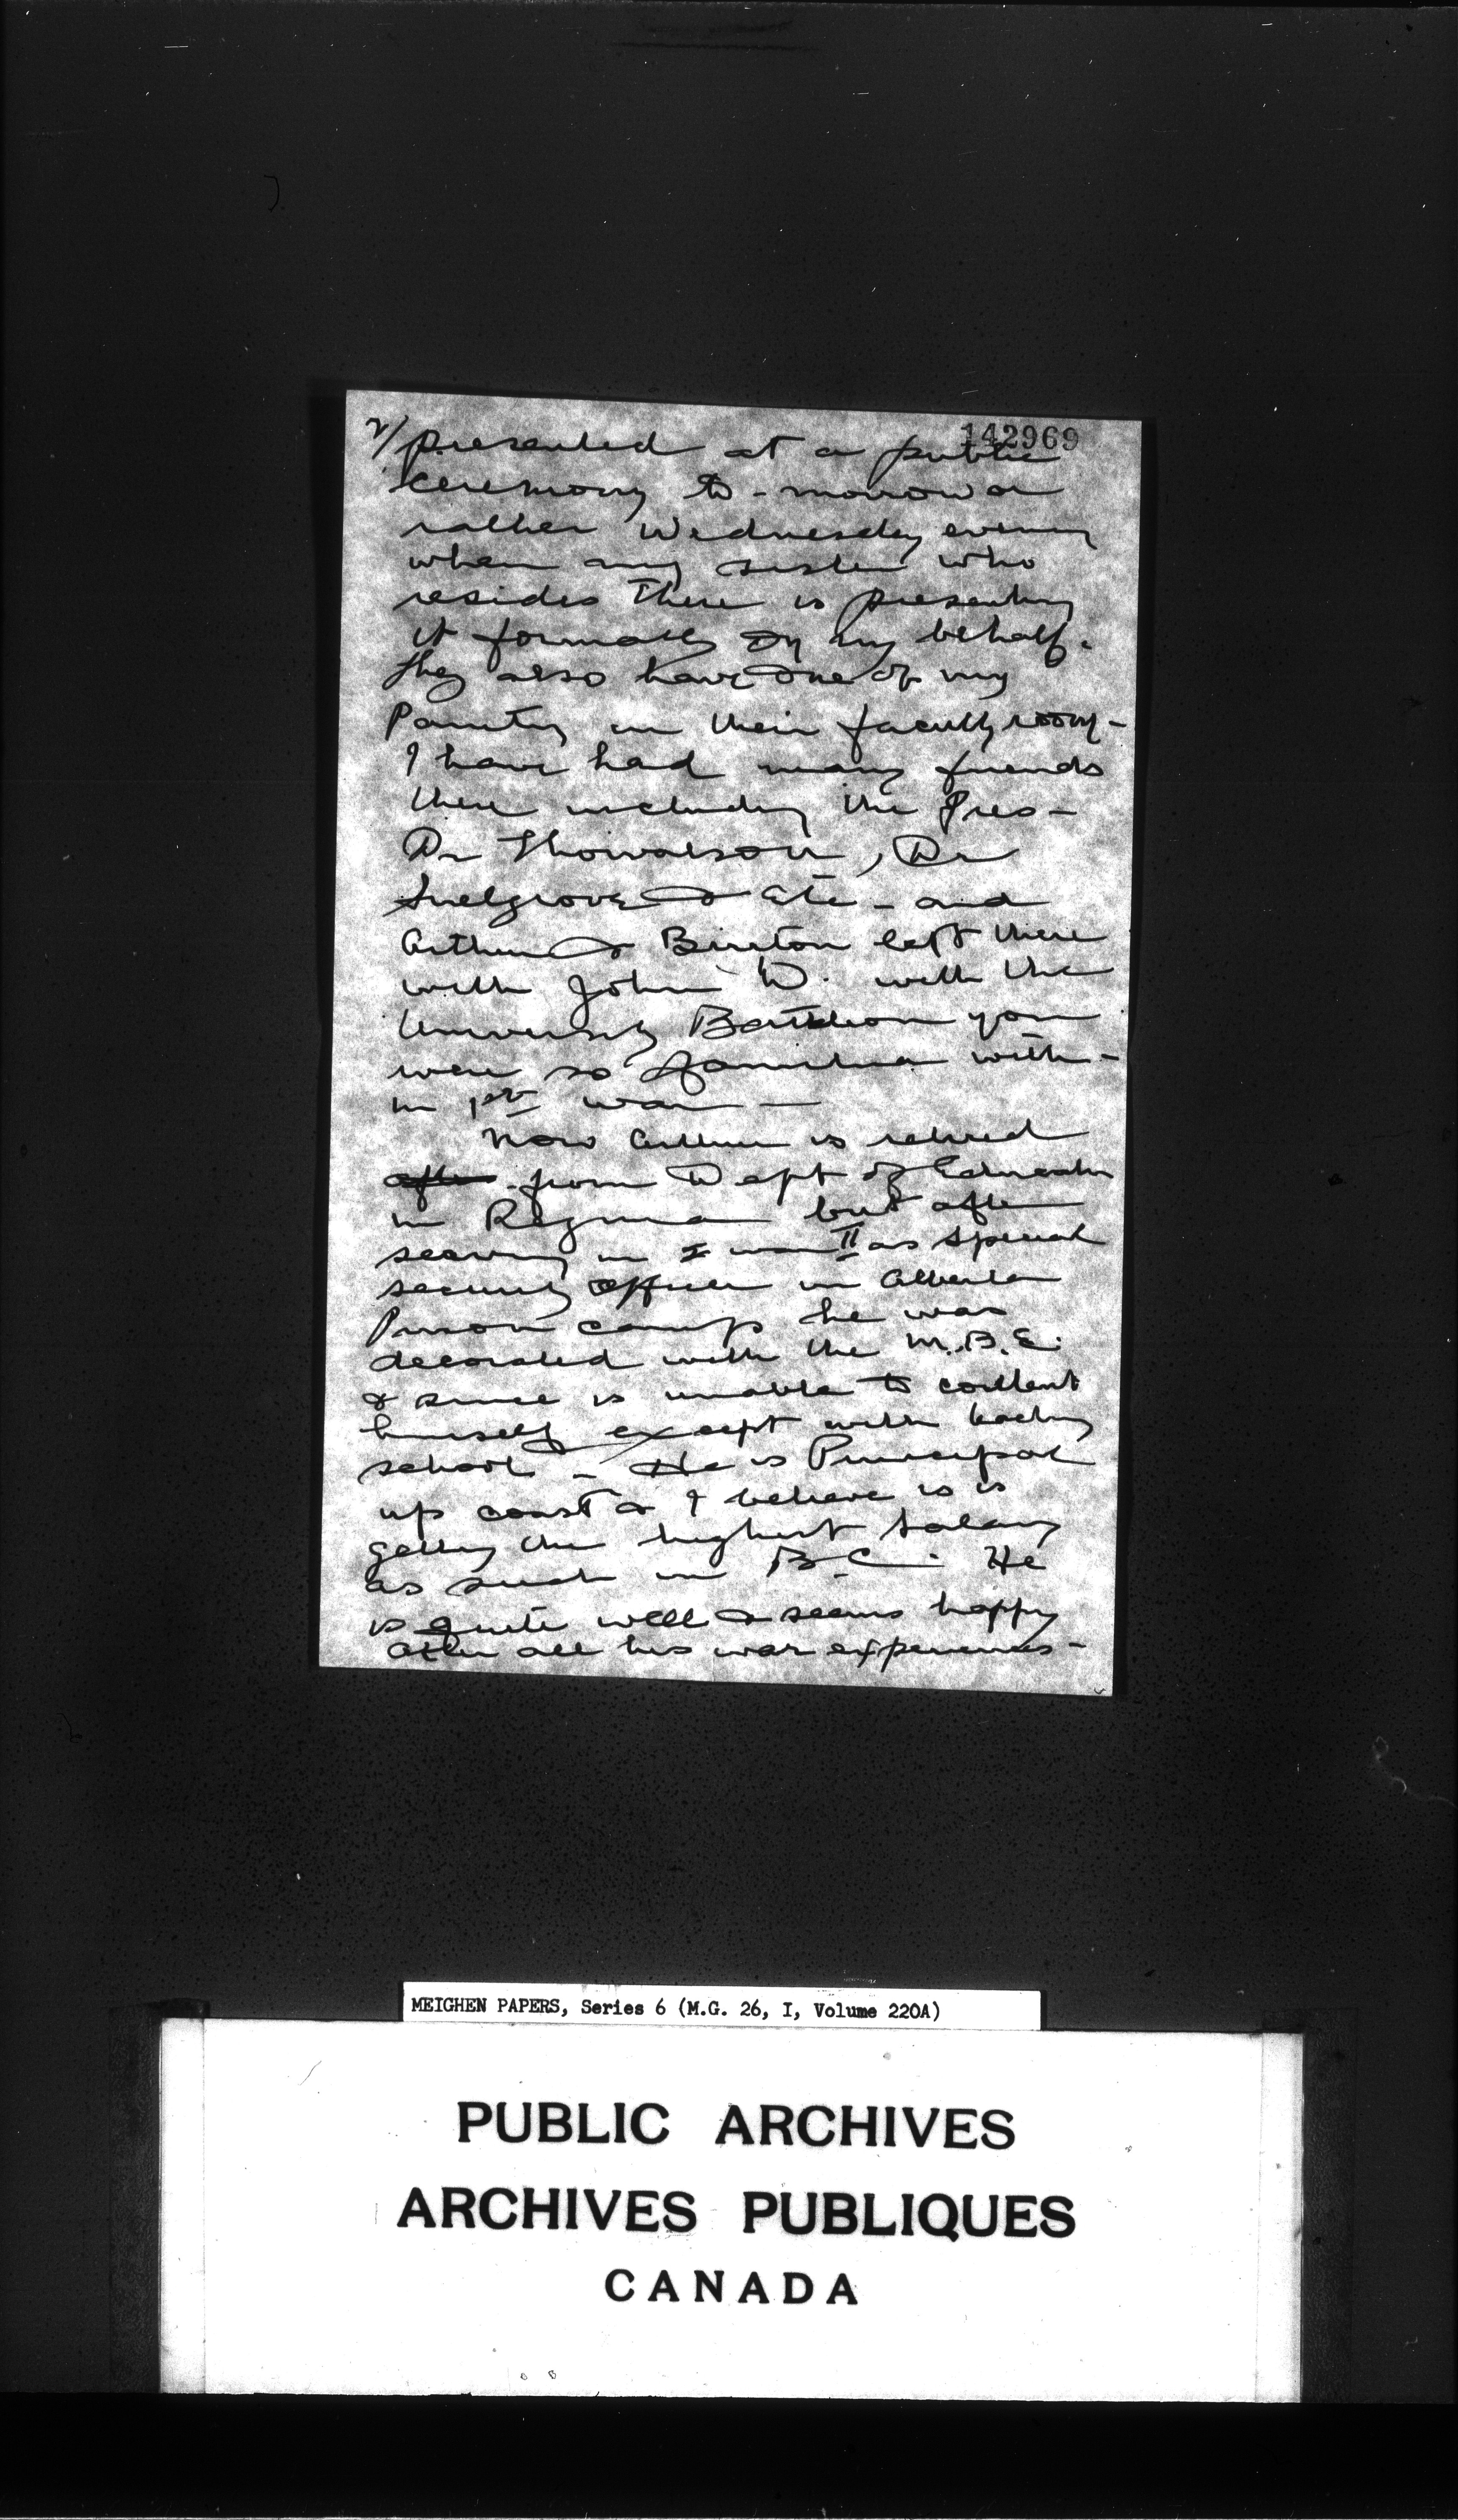 142969
2/ presented at a public
ceremony to-morrow or
rather Wednesday evening
when my sister who
resides there is presenting
it formally on my behalf.
They also have one of my
Painting in their faculty room -
I have had many friends
there including the Pres -
Dr Thorvaldson, Dr
Snelgrove & Etc - and
Arthur & Burton left there
with John D. with the
University Battalion you
were so familiar with -
in 1st war —
Now Arthur is retired
after from Dept of Education
in Regina but after
serving in war II as special
security officer in Alberta
Prison camp he was
decorated with the M.B.E.
& since is unable to content
himself except with teaching
school - He is Principal
up coast & I believe is is
getting the highest salary
as such in B.C. He
is quite well & seems happy
after all his war experiences -
MEIGHEN PAPERS, Series 6 (M.G. 26, I, Volume 220A)
PUBLIC ARCHIVES
ARCHIVES PUBLIQUES
CANADA